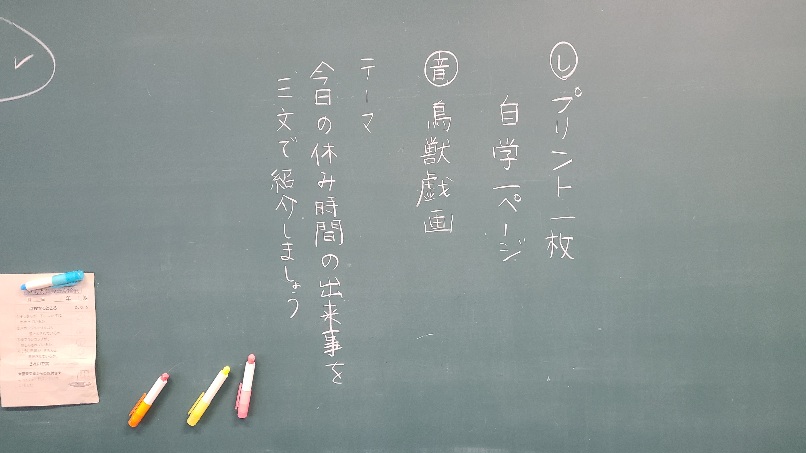 ㋛プリント一枚
自学一ページ
㊥鳥獣戯画
テーマ
今日の休み時間の出来事を
三文で紹介しましょう